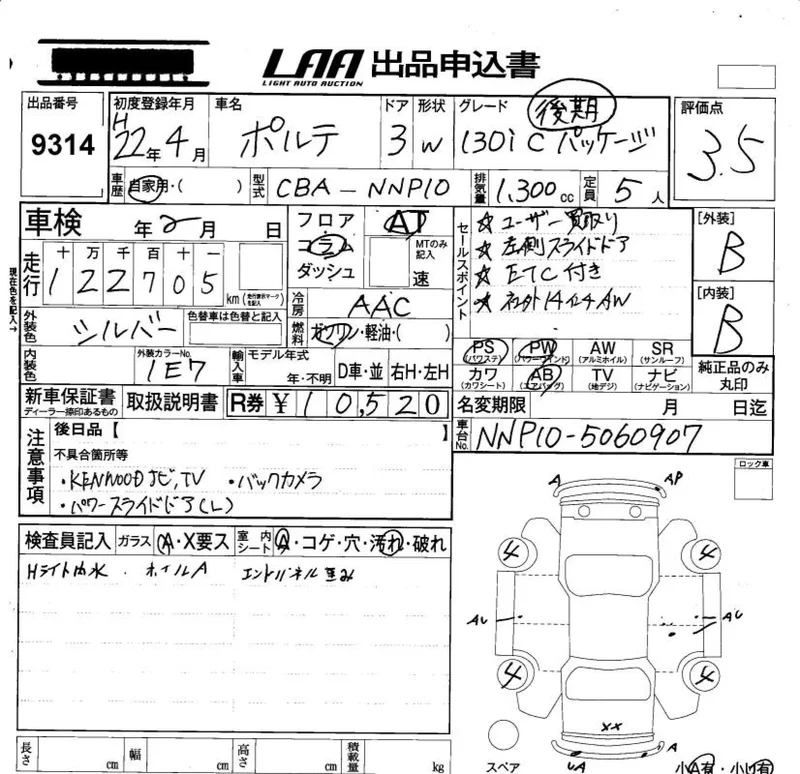 LAA 出品申込書
LIGHT AUTO AUCTION
出品番号 9314
初度登録年月 H22年4月
車名 ポルテ
ドア 3
形状 W
グレード 後期
130i C パッケージ
評価点 3.5
車歴 自家用・( )
型式 CBA-NNP10
排気量 1.300cc
定員 5人
車検 年2月 日
フロア
コラム
ダッシュ
AT
MTのみ記入
速
セールスポイント
☆ユーザー買取り
☆左側スライドドア
☆ETC付き
[外装] B
[内装] B
走行 十 万 千 百 十 一
122705 km (走行表示マークを記入)
現在色を記入→
冷房 AAC
燃料 ガソリン・軽油・( )
外装色 シルバー
色替車は色替と記入
PS (パワステ) PW (パワーウインド) AW (アルミホイル) SR (サンルーフ)
カワ (カワシート) AB (エアバッグ) TV (地デジ) ナビ (ナビゲーション)
純正品のみ丸印
内装色
外装カラーNo. 1E7
輸入車 モデル年式 年・不明 D車・並 右H・左H
新車保証書 ディーラー捺印あるもの
取扱説明書
R券 ¥10,520
名変期限 月 日迄
車台No. NNP10-5060907
注意事項
後日品【 】
不具合箇所等
・KENWOODナビ,TV ・バックカメラ
・パワースライドドア(L)
ロック車
検査員記入 ガラス A・X要ス 室内シート A・コゲ・穴・汚れ・破れ
Hライト内水 ホイルA エンドパネル歪み
A AP
4 4
AU AU
4 4
XX
UA A
スペア
小A有・小U有
長さ cm 幅 cm 高さ cm 積載量 kg